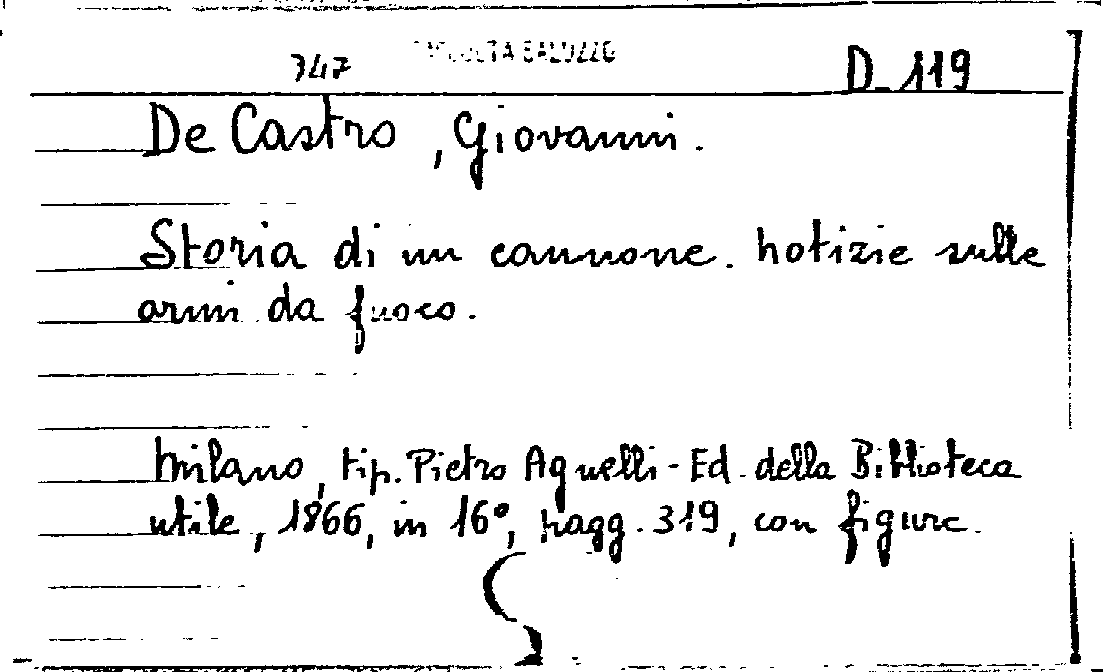 747 D_119
De Castro, Giovanni.
Storia di un cannone. Notizie sulle
armi da fuoco.
Milano, tip. Pietro Agnelli - Ed. della Biblioteca
utile, 1866, in 16°, pagg. 319, con figure.